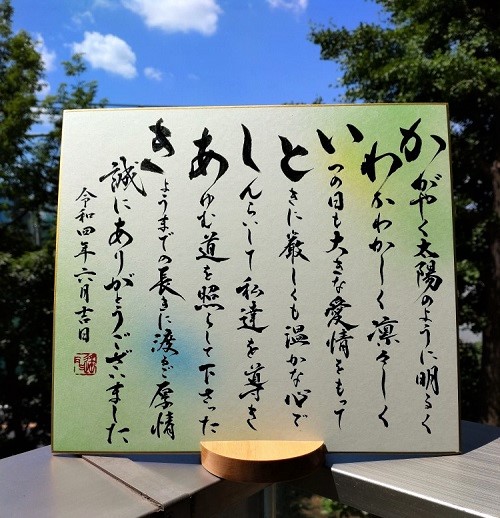 かがやく太陽のように明るく
わかわかしく凛々しく
いつの日も大きな愛情をもって
ときに厳しくも温かな心で
しんらいして私達を導き
あゆむ道を照らして下さった
きょうまでの長きに渡るご厚情
誠にありがとうございました
令和四年六月吉日